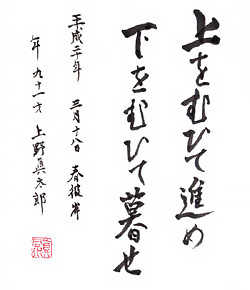 上をむひて進め
下をむひて暮せ
平成二年 三月十八日 春彼岸
年九十一才 上野眞太郎